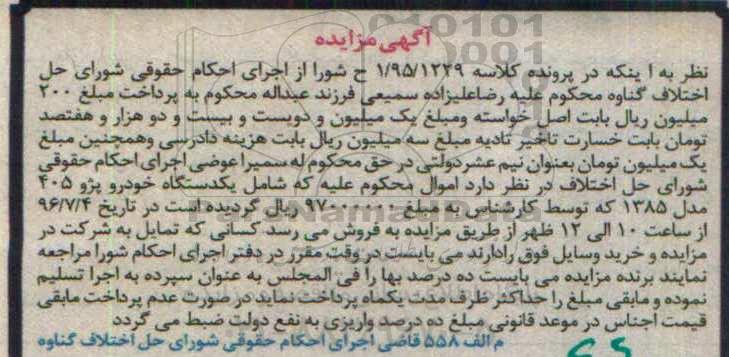 آگهی مزایده
نظر به ا ینکه در پرونده کلاسه ۱/۹۵/۱۲۲۹ ح شورا از اجرای احکام حقوقی شورای حل
اختلاف گناوه محکوم علیه رضاعلیزاده سمیعی فرزند عبداله محکوم به پرداخت مبلغ ۲۰۰
میلیون ریال بابت اصل خواسته ومبلغ یک میلیون و دویست و بیست و دو هزار و هفتصد
تومان بابت خسارت تاخیر تادیه مبلغ سه میلیون ریال بابت هزینه دادرسی وهمچنین مبلغ
یک میلیون تومان بعنوان نیم عشردولتی در حق محکوم له سمیرا عوضی اجرای احکام حقوقی
شورای حل اختلاف در نظر دارد اموال محکوم علیه که شامل یکدستگاه خودرو پژو ۴۰۵
مدل ۱۳۸۵ که توسط کارشناس به مبلغ ۹۷۰۰۰۰۰۰ ریال گردیده است در تاریخ ۹۶/۷/۴
از ساعت ۱۰ الی ۱۲ ظهر از طریق مزایده به فروش می رسد کسانی که تمایل به شرکت در
مزایده و خرید وسایل فوق رادارند می بایست در وقت مقرر در دفتر اجرای احکام شورا مراجعه
نمایند برنده مزایده می بایست ده درصد بها را فی المجلس به عنوان سپرده به اجرا تسلیم
نموده و مابقی مبلغ را حداکثر ظرف مدت یکماه پرداخت نماید در صورت عدم پرداخت مابقی
قیمت اجناس در موعد قانونی مبلغ ده درصد واریزی به نفع دولت ضبط می گردد
م الف ۵۵۸ قاضی اجرای احکام حقوقی شورای حل اختلاف گناوه